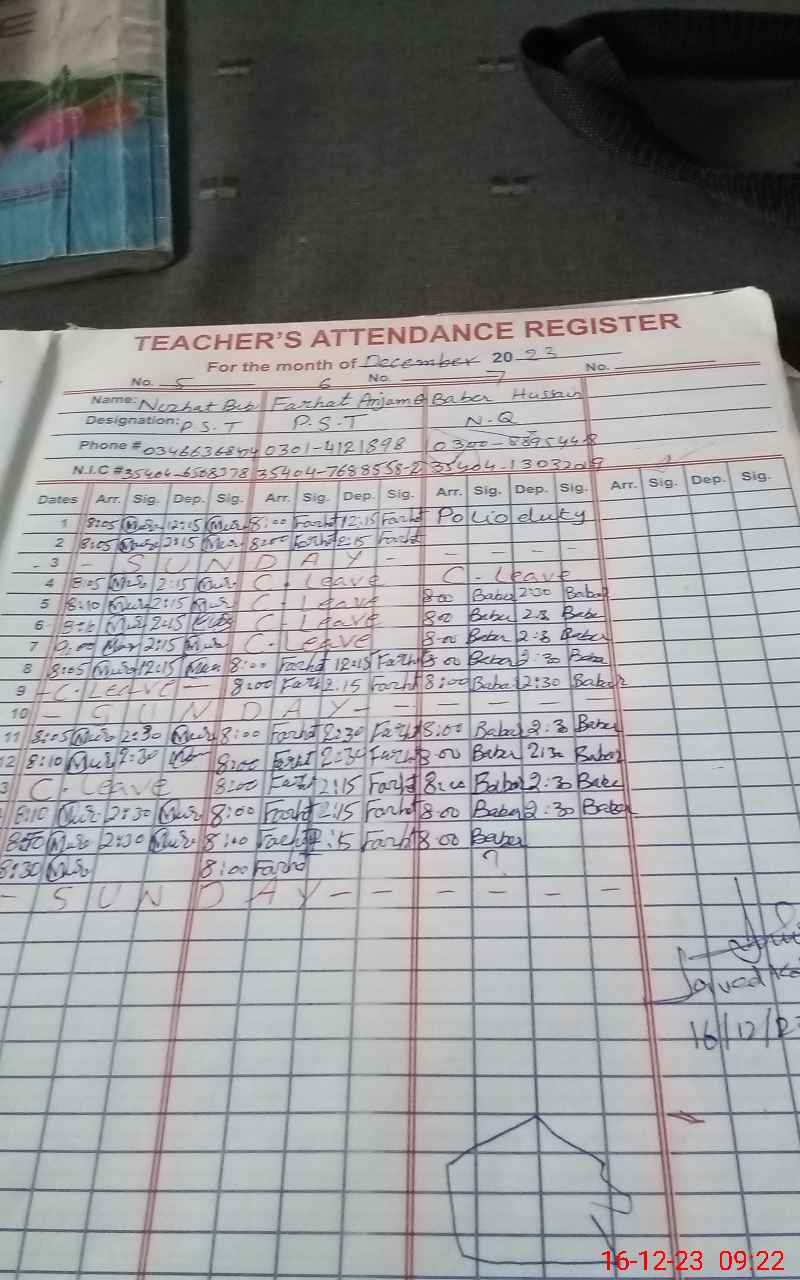 TEACHER'S ATTENDANCE REGISTER
For the month of December 2023
No. 5 6 No. 7 No.
Name: Nozhat Bibi Farhat Anjam Baber Hussain
Designation: P.S.T P.S.T N.Q
Phone # 0301-4121898
N.I.C # 35404-7688558-2
Dates Arr. Sig. Dep. Sig. Arr. Sig. Dep. Sig. Arr. Sig. Dep. Sig. Arr. Sig. Dep. Sig.
1 8:05 12:15 8:00 Farht 12:15 Farht Polio duty
2 8:05 2:15 8:00 Farht 2:15 Farht
3 - S U N D A Y - - - - - -
4 8:05 2:15 C. Leave C. Leave
5 8:10 2:15 C. Leave 8:00 Baber 2:30 Baber
6 2:15 C. Leave 8:00 Baber 2:30 Baber
7 9:00 2:15 C. Leave 8:00 Baber 2:30 Baber
8 8:05 12:15 8:00 Farht 12:15 Farht 8:00 Baber 2:30 Baber
9 - C. Leave - 8:00 Farht 2:15 Farht 8:00 Baber 2:30 Baber
10 - S U N D A Y - - - - - -
11 8:05 2:30 8:00 Farht 2:30 Farht 8:00 Baber 2:30 Baber
12 8:10 2:30 8:00 Farht 2:30 Farht 8:00 Baber 2:30 Baber
3 C. Leave 8:00 Farht 2:15 Farht 8:00 Baber 2:30 Baber
8:10 2:30 8:00 Farht 2:15 Farht 8:00 Baber 2:30 Baber
2:30 8:00 Farht 2:15 Farht 8:00 Baber
8:30 8:00 Farht ?
- S U N D A Y - - - - - -
16/12/23
16-12-23 09:22